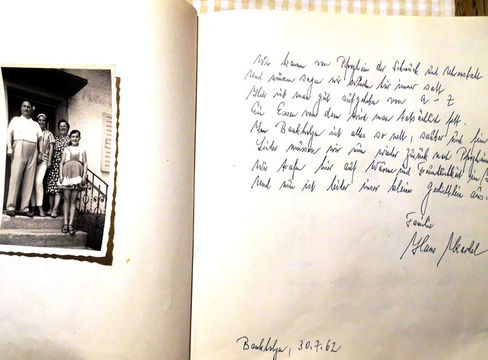 Wir kamen von Pforzheim der Schmuck und Uhrenstadt
Und müssen sagen wir wurden hier immer satt
Hier ist man gut aufgehoben von A - Z
Ein Essen von dem wird man tatsächlich fett.
In Bankholzen ist alles so nett, sauber und fein
Leider müssen wir nun wieder zurück nach Pforzheim
Wir trafen hier auf Wärme und Freundlichkeit im
Und nun ist leider unser kleines Gedichtlein aus.
Familie
Hans
Bankholzen, 30.7.62